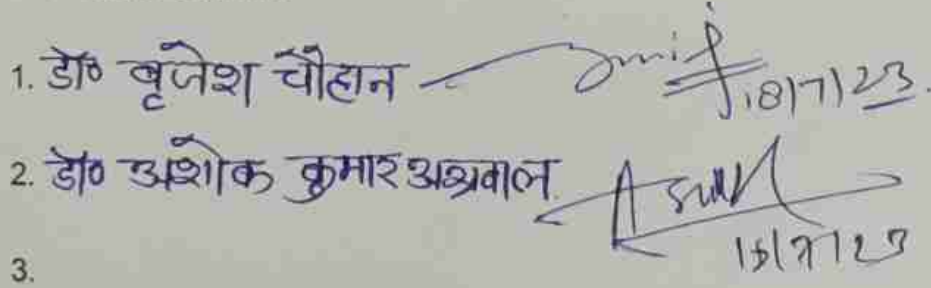 1. डॉ० बृजेश चौहान 18/7/23
2. डॉ० अशोक कुमार अग्रवाल
3.